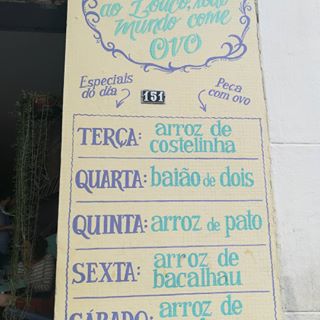 ao Louco, todo
mundo come
OVO
Especiais
do dia
151
Peça
com ovo
TERÇA: arroz de
costelinha
QUARTA: baião de dois
QUINTA: arroz de pato
SEXTA: arroz de
bacalhau
SÁBADO: arroz de